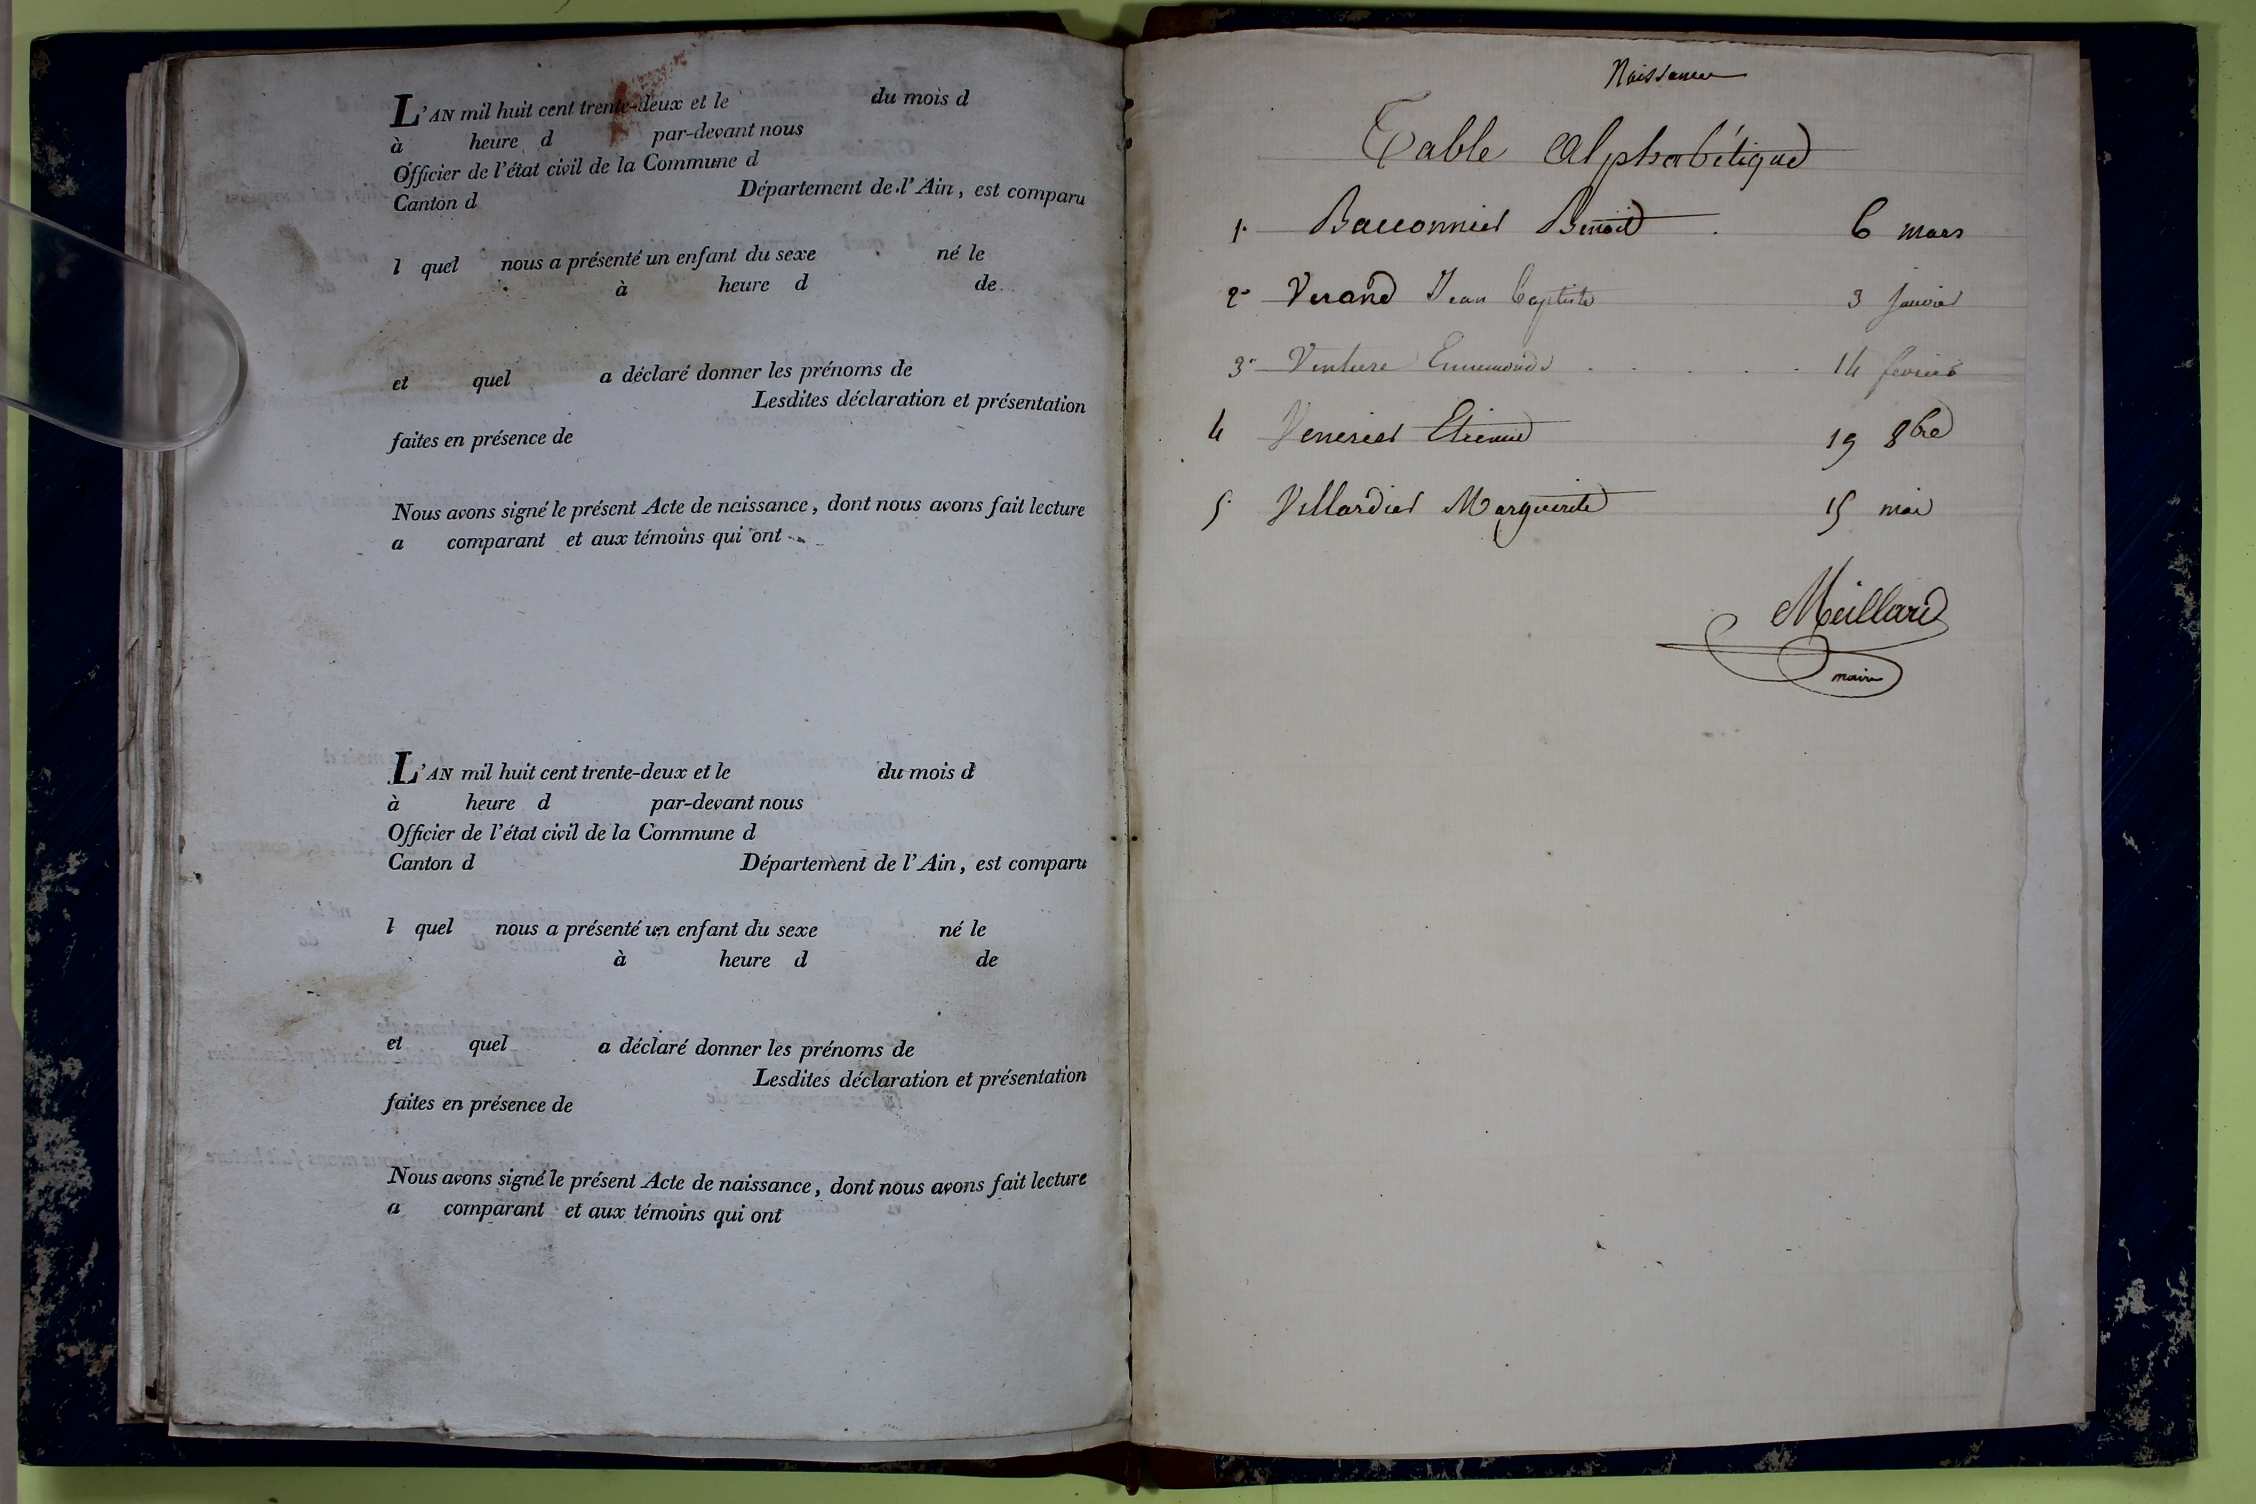 L'AN mil huit cent trente-deux et le du mois d
à heure d par-devant nous
Officier de l'état civil de la Commune d
Canton d Département de l'Ain, est comparu
l quel nous a présenté un enfant du sexe né le
à heure d de
et quel a déclaré donner les prénoms de
Lesdites déclaration et présentation
faites en présence de
Nous avons signé le présent Acte de naissance, dont nous avons fait lecture
a comparant et aux témoins qui ont
L'AN mil huit cent trente-deux et le du mois d
à heure d par-devant nous
Officier de l'état civil de la Commune d
Canton d Département de l'Ain, est comparu
l quel nous a présenté un enfant du sexe né le
à heure d de
et quel a déclaré donner les prénoms de
Lesdites déclaration et présentation
faites en présence de
Nous avons signé le présent Acte de naissance, dont nous avons fait lecture
a comparant et aux témoins qui ont
Naissance
Table Alphabétique
1. Bacconnier Benoit 6 mars
2° Verand Jean Baptiste 3 janvier
3° Venture Ennemonde 14 fevrier
4 Venerier Etienne 19 8bre
5. Villardier Marguerite 15 mai
Meillard
maire